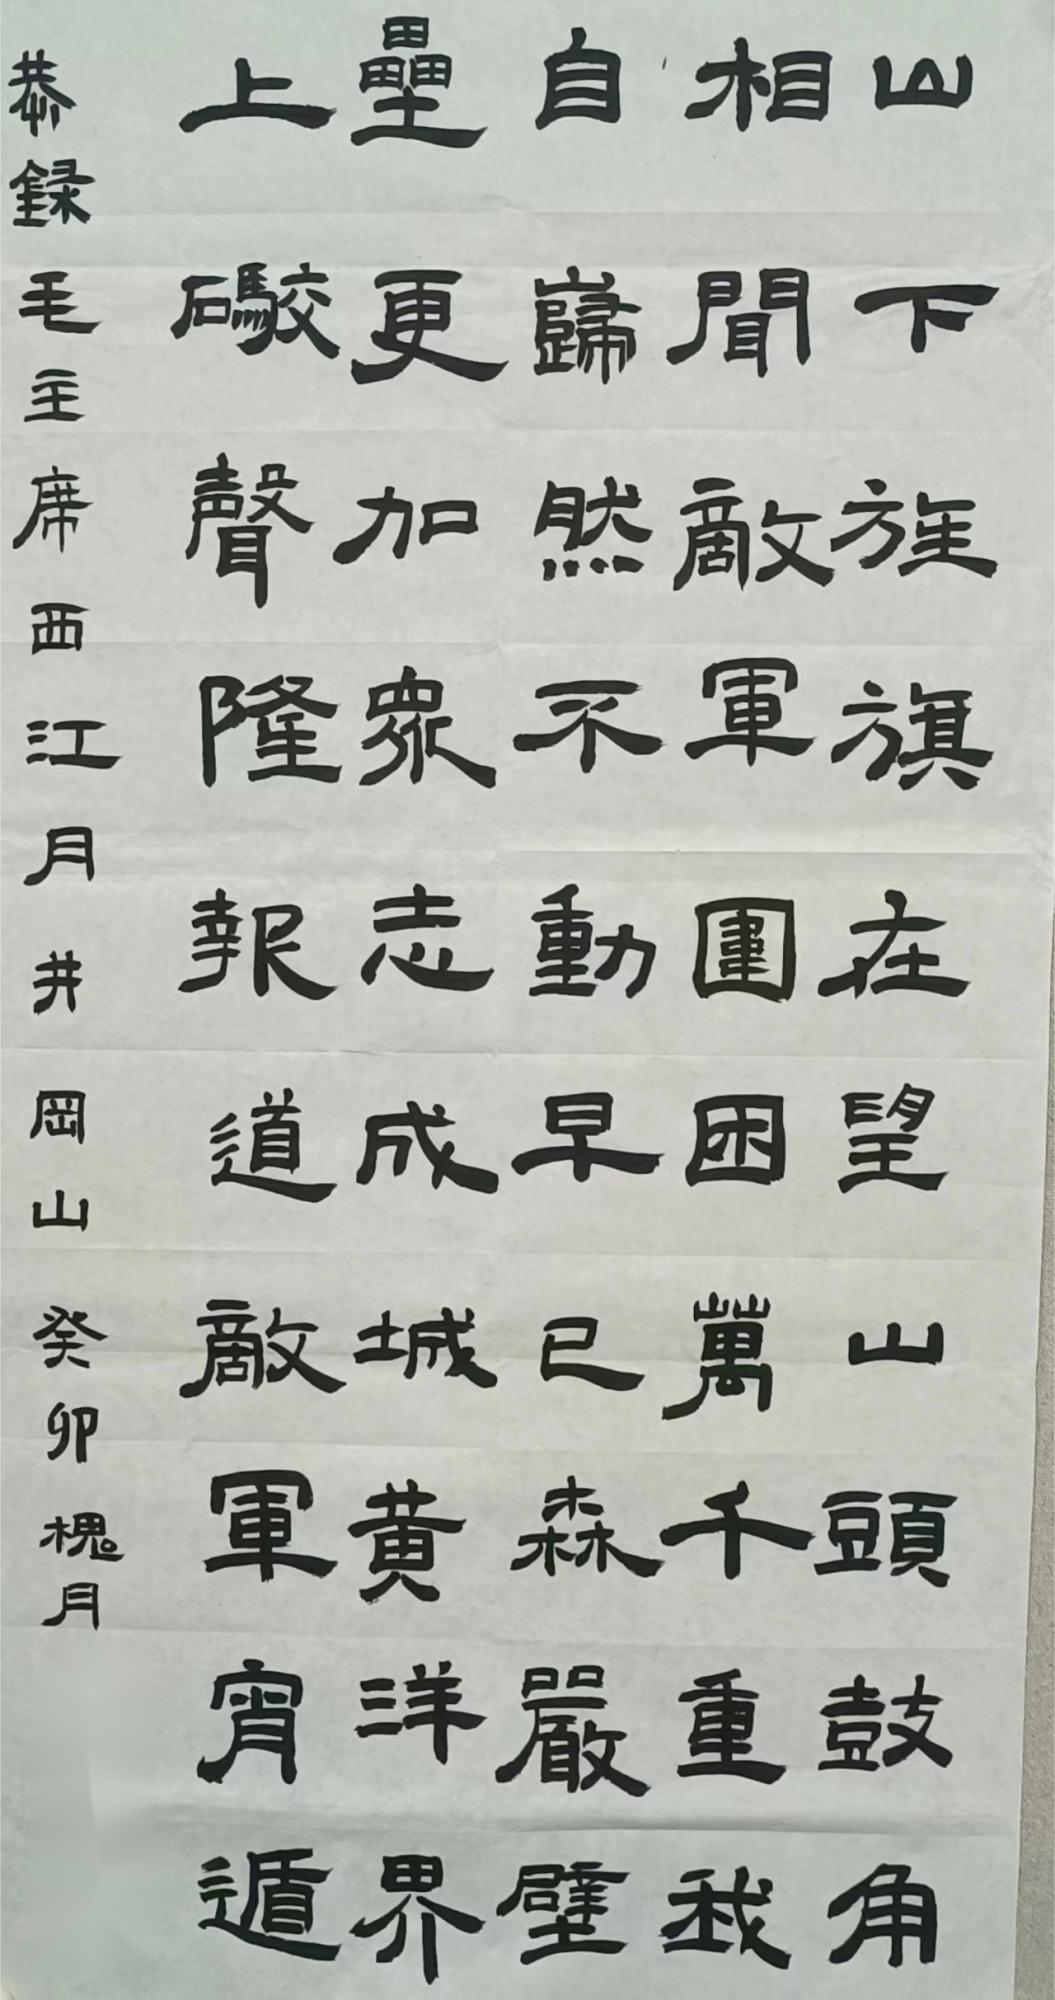 山下旌旗在望山頭鼓角
相聞敵軍圍困萬千重我
自巋然不動早已森嚴壁
壘更加眾志成城黄洋界
上礮聲隆報道敵軍宵遁
恭録毛主席西江月井岡山癸卯槐月